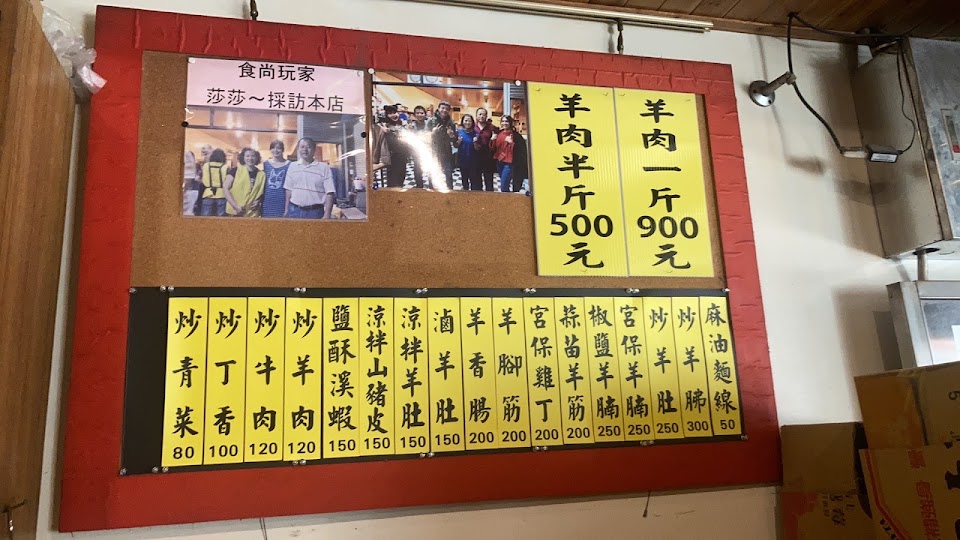 食尚玩家
莎莎～採訪本店
羊肉半斤500元
羊肉一斤900元
炒青菜 80
炒丁香 100
炒牛肉 120
炒羊肉 120
鹽酥溪蝦 150
涼拌山豬皮 150
涼拌羊肚 150
滷羊肚 150
羊香腸 200
羊腳筋 200
宮保雞丁 200
蒜苗羊筋 200
椒鹽羊腩 250
宮保羊腩 250
炒羊肚 250
炒羊胇 300
麻油麵線 50